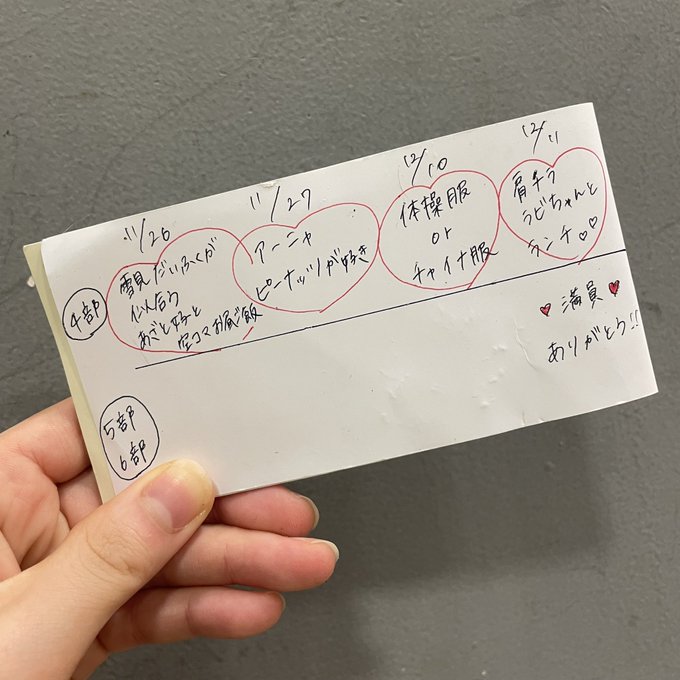 11/26
雪見だいふくが
似合う
あざと女子と
空コマお昼ご飯
11/27
アーニャ
ピーナッツが好き
12/10
体操服
or
チャイナ服
12/11
肩チラ
ラビちゃんと
ランチ♡♡
4部
♥ 満員 ♥
ありがとう!!
5部
6部